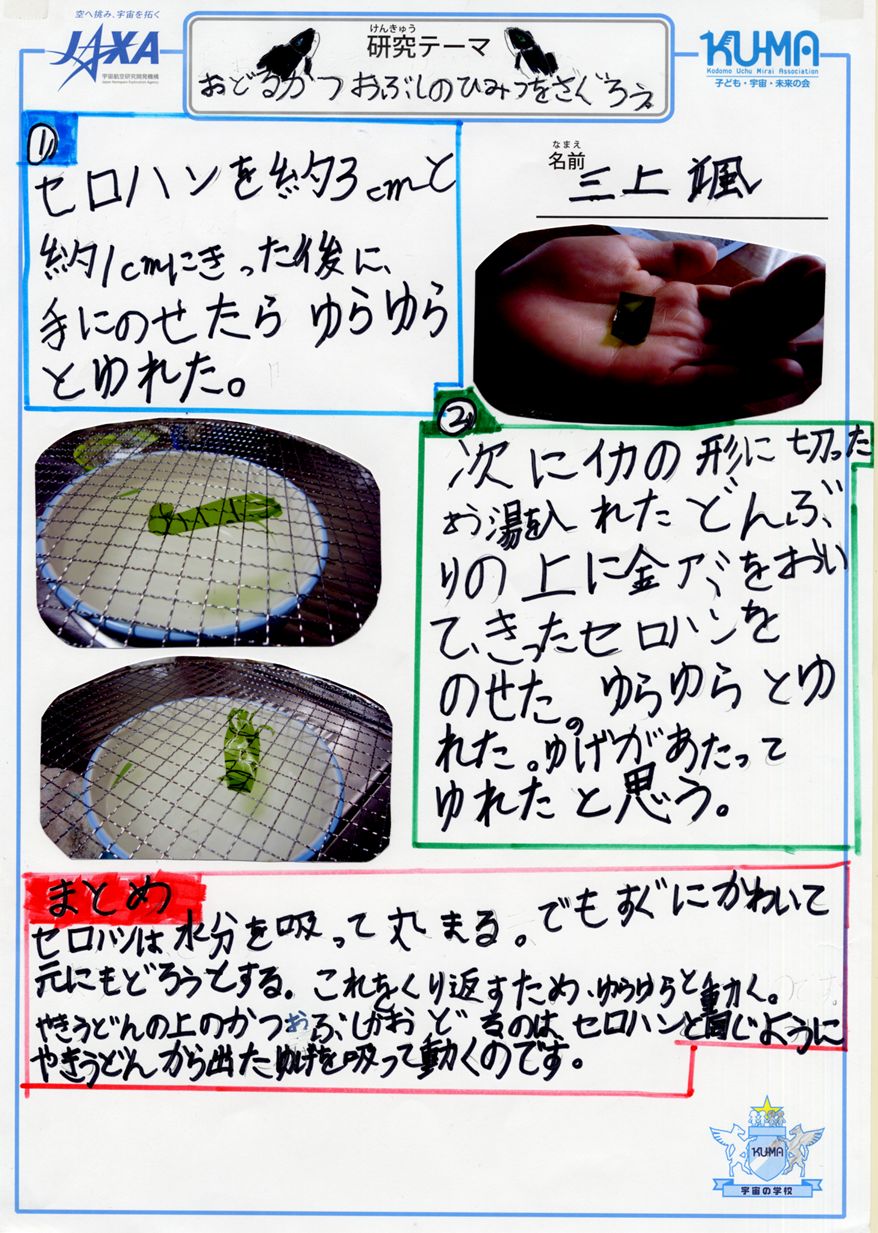 空へ挑み、宇宙を拓く
JAXA
宇宙航空研究開発機構
Japan Aerospace Exploration Agency
けんきゅう
研究テーマ
おどるかつおぶしのひみつをさぐろう
KU-MA
Kodomo Uchu Mirai Association
子ども・宇宙・未来の会
なまえ
名前
三上 颯
①
セロハンを約3cmと
約1cmにきった後に、
手にのせたら ゆらゆら
とゆれた。
②
次にイカの形に切った
お湯を入れたどんぶ
りの上に金アミをおい
て、きったセロハンを
のせた。ゆらゆらとゆ
れた。ゆげがあたって
ゆれたと思う。
まとめ
セロハンは水分を吸って丸まる。でもすぐにかわいて
元にもどろうとする。これをくり返すため、ゆらゆらと動く。
やきうどんの上のかつおぶしがおどるのは、セロハンと同じように
やきうどんから出たゆげを吸って動くのです。
KU-MA
宇宙の学校